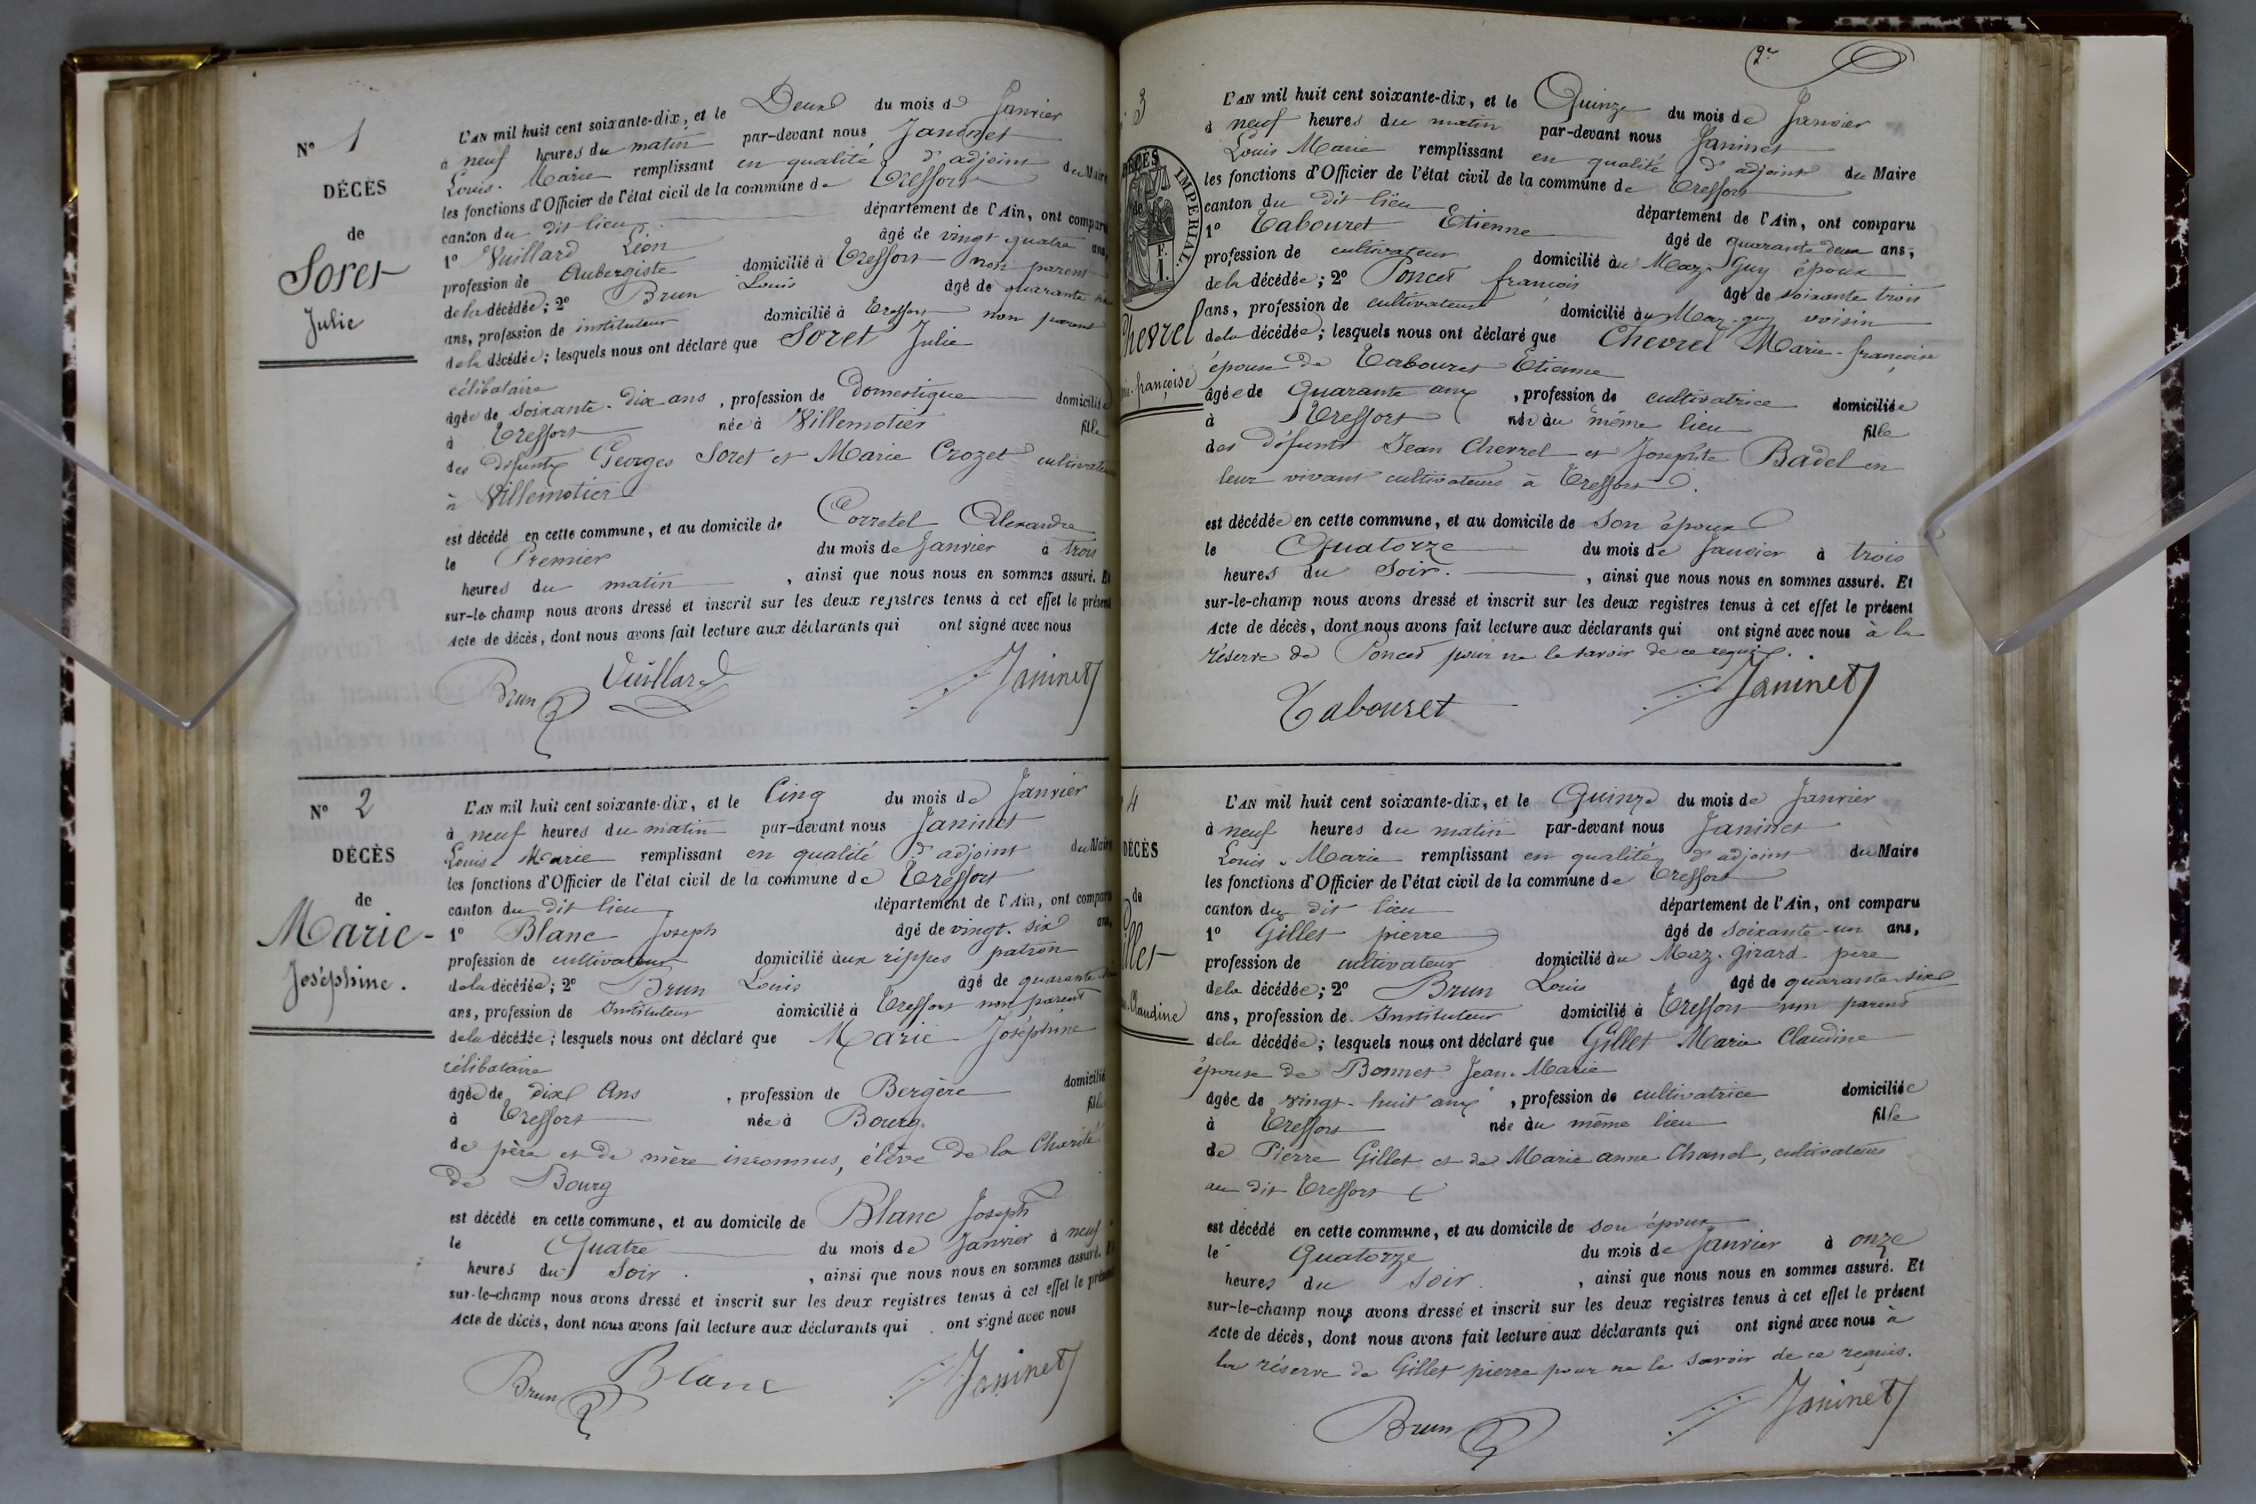 N° 1
DÉCÈS
de
Soret
Julie
L'AN mil huit cent soixante-dix, et le Deux du mois de Janvier
à neuf heures du matin par-devant nous Janinet
Louis-Marie remplissant en qualité d'adjoint du Maire
les fonctions d'Officier de l'état civil de la commune de Treffort
canton du dit lieu département de l'Ain, ont comparu
1° Vuillard Léon âgé de vingt quatre ans,
profession de Aubergiste domicilié à Treffort non parent
de la décédée; 2° Brun Louis âgé de quarante six
ans, profession de instituteur domicilié à Treffort non parent
de la décédée; lesquels nous ont déclaré que Soret Julie
célibataire
âgée de soixante-dix ans, profession de Domestique domiciliée
à Treffort née à Villemotier fille
des défunts Georges Soret et Marie Crozet cultivateurs
à Villemotier
est décédé en cette commune, et au domicile de Corretel Alexandre
le Premier du mois de Janvier à trois
heures du matin, ainsi que nous nous en sommes assuré. Et
sur-le-champ nous avons dressé et inscrit sur les deux registres tenus à cet effet le présent
Acte de décès, dont nous avons fait lecture aux déclarants qui ont signé avec nous
Brun Vuillard Janinet
N° 2
DÉCÈS
de
Marie-
Joséphine.
L'AN mil huit cent soixante-dix, et le Cinq du mois de Janvier
à neuf heures du matin par-devant nous Janinet
Louis-Marie remplissant en qualité d'adjoint du Maire
les fonctions d'Officier de l'état civil de la commune de Treffort
canton du dit lieu département de l'Ain, ont comparu
1° Blanc Joseph âgé de vingt-six ans,
profession de cultivateur domicilié aux rippes patron
de la décédée; 2° Brun Louis âgé de quarante six
ans, profession de Instituteur domicilié à Treffort non parent
de la décédée; lesquels nous ont déclaré que Marie Joséphine
célibataire
âgée de dix ans, profession de Bergère domicilié
à Treffort née à Bourg fille
de père et de mère inconnus, élève de la Charité
de Bourg
est décédé en cette commune, et au domicile de Blanc Joseph
le Quatre du mois de Janvier à neuf
heures du Soir., ainsi que nous nous en sommes assuré. Et
sur-le-champ nous avons dressé et inscrit sur les deux registres tenus à cet effet le présent
Acte de décès, dont nous avons fait lecture aux déclarants qui ont signé avec nous
Brun Blanc Janinet
2e
3
DÉCÈS
IMPERIAL
F.
1.
Chevrel
françoise
L'AN mil huit cent soixante-dix, et le Quinze du mois de Janvier
à neuf heures du matin par-devant nous Janinet
Louis Marie remplissant en qualité d'adjoint du Maire
les fonctions d'Officier de l'état civil de la commune de Treffort
canton du dit lieu département de l'Ain, ont comparu
1° Tabouret Etienne âgé de quarante deux ans,
profession de cultivateur domicilié au Maz-Guy époux
de la décédée; 2° Poncet françois âgé de soixante trois
ans, profession de cultivateur domicilié au Maz-guy voisin
de la décédée; lesquels nous ont déclaré que Chevrel Marie-françoise
épouse de Tabouret Etienne
âgée de Quarante ans, profession de cultivatrice domiciliée
à Treffort née au même lieu fille
des défunts Jean Chevrel et Josephte Badel en
leur vivant cultivateurs à Treffort.
est décédée en cette commune, et au domicile de Son époux
le Quatorze du mois de Janvier à trois
heures du Soir., ainsi que nous nous en sommes assuré. Et
sur-le-champ nous avons dressé et inscrit sur les deux registres tenus à cet effet le présent
Acte de décès, dont nous avons fait lecture aux déclarants qui ont signé avec nous à la
réserve de Poncet pour ne le savoir de ce requis.
Tabouret Janinet
4
DÉCÈS
de
Gillet
Claudine
L'AN mil huit cent soixante-dix, et le Quinze du mois de Janvier
à neuf heures du matin par-devant nous Janinet
Louis-Marie remplissant en qualité d'adjoint du Maire
les fonctions d'Officier de l'état civil de la commune de Treffort
canton du dit lieu département de l'Ain, ont comparu
1° Gillet pierre âgé de soixante-un ans,
profession de cultivateur domicilié au Maz-Girard père
de la décédée; 2° Brun Louis âgé de quarante-six
ans, profession de Instituteur domicilié à Treffort non parent
de la décédée; lesquels nous ont déclaré que Gillet Marie Claudine
épouse de Bonnet Jean-Marie
âgée de vingt-huit ans, profession de cultivatrice domiciliée
à Treffort née au même lieu fille
de Pierre Gillet et de Marie anne Chanel, cultivateurs
au dit Treffort
est décédé en cette commune, et au domicile de son époux
le Quatorze du mois de Janvier à onze
heures du Soir., ainsi que nous nous en sommes assuré. Et
sur-le-champ nous avons dressé et inscrit sur les deux registres tenus à cet effet le présent
Acte de décès, dont nous avons fait lecture aux déclarants qui ont signé avec nous à
la réserve de Gillet pierre pour ne le savoir de ce requis.
Brun Janinet